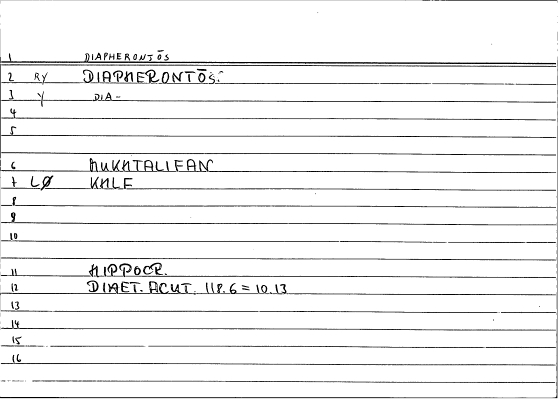 1 DIAPHERONTŌS
2 RY DIAPHERONTŌS.
3 Y DIA-
4
5
6 MUKHTALIFAN
7 LØ KHLF
8
9
10
11 HIPPOCR.
12 DIAET. ACUT. 118.6 = 10.13
13
14
15
16